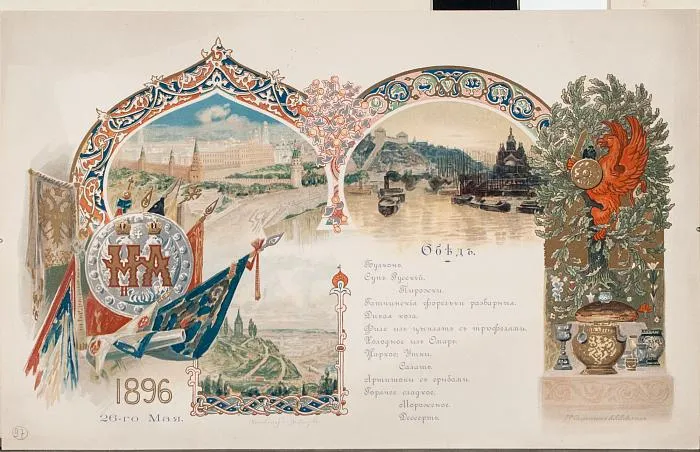 Обѣдъ.
Бульонъ.
Супъ Русскій.
Пирожки.
Гатчинскія форельки разварныя.
Дикая коза.
Филе изъ цыплятъ съ трюфелями.
Холодное изъ Омаръ.
Жаркое: Утки.
Салатъ.
Артишоки съ грибами.
Горячее сладкое.
Мороженое.
Дессертъ.
НА
1896
26-го Мая.
97